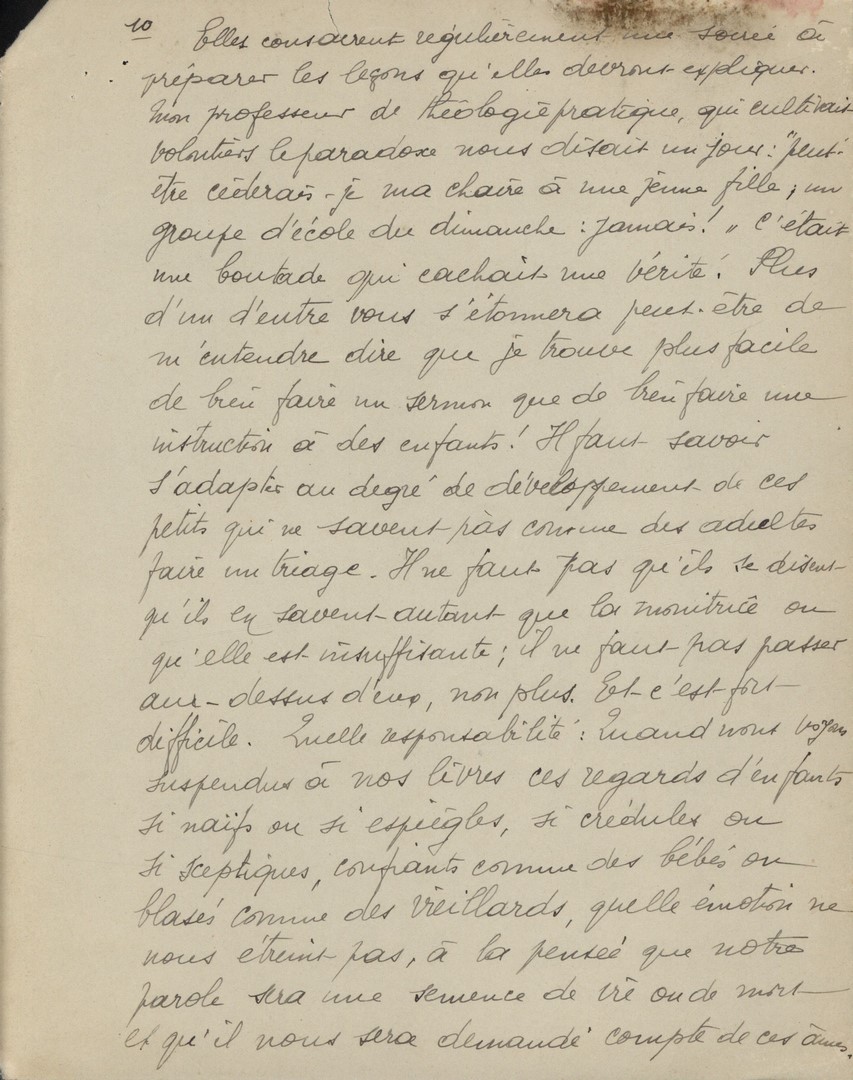 10
Elles consacrent régulièrement une soirée à
préparer les leçons qu'elles devront expliquer.
Mon professeur de théologie pratique, qui cultivait
volontiers le paradoxe nous disait un jour : "peut-
être céderais-je ma chaire à une jeune fille ; un
groupe d'école du dimanche : jamais ! " C'était
une boutade qui cachait une vérité ! Plus
d'un d'entre vous s'étonnera peut-être de
m'entendre dire que je trouve plus facile
de bien faire un sermon que de bien faire une
instruction à des enfants ! Il faut savoir
s'adapter au degré de développement de ces
petits qui ne savent pas comme des adultes
faire un triage. Il ne faut pas qu'ils se disent
qu'ils en savent autant que la monitrice ou
qu'elle est insuffisante ; il ne faut pas passer
aur-dessus d'eux, non plus. Et c'est fort
difficile. Quelle responsabilité : Quand nous voyons
suspendus à nos lèvres ces regards d'enfants
si naïfs ou si espiègles, si crédules ou
si sceptiques, confiants comme des bébés ou
blasés comme des vieillards, quelle émotion ne
nous étreint pas, à la pensée que notre
parole sera une semence de vie ou de mort
et qu'il nous sera demandé compte de ces âmes.